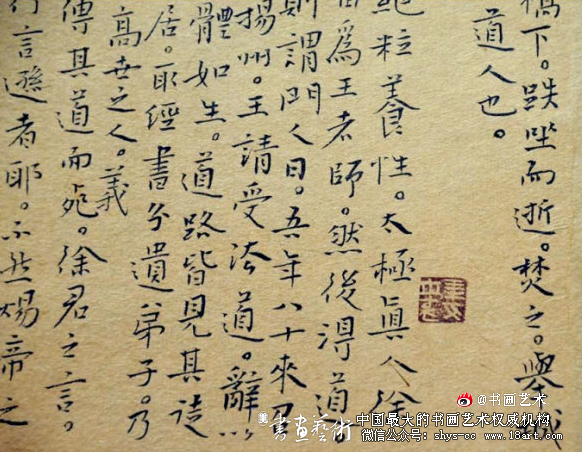 橋下。趺坐而逝。焚之。舉
道人也。
絕粒養性。太極眞人徐
為王者師。然後得道
則謂門人曰。吾年八十來
揚州。王請受法道。辭以
體如生。道路皆見其徒
居。取經書分遺弟子。乃
高世之人。義
傳其道而。徐君之言。
行言遜者耶。不然煬帝之
@书画艺术
美 書画藝術
中国最大的书画艺术权威机构
微信公众号：shys-cc www.18art.com